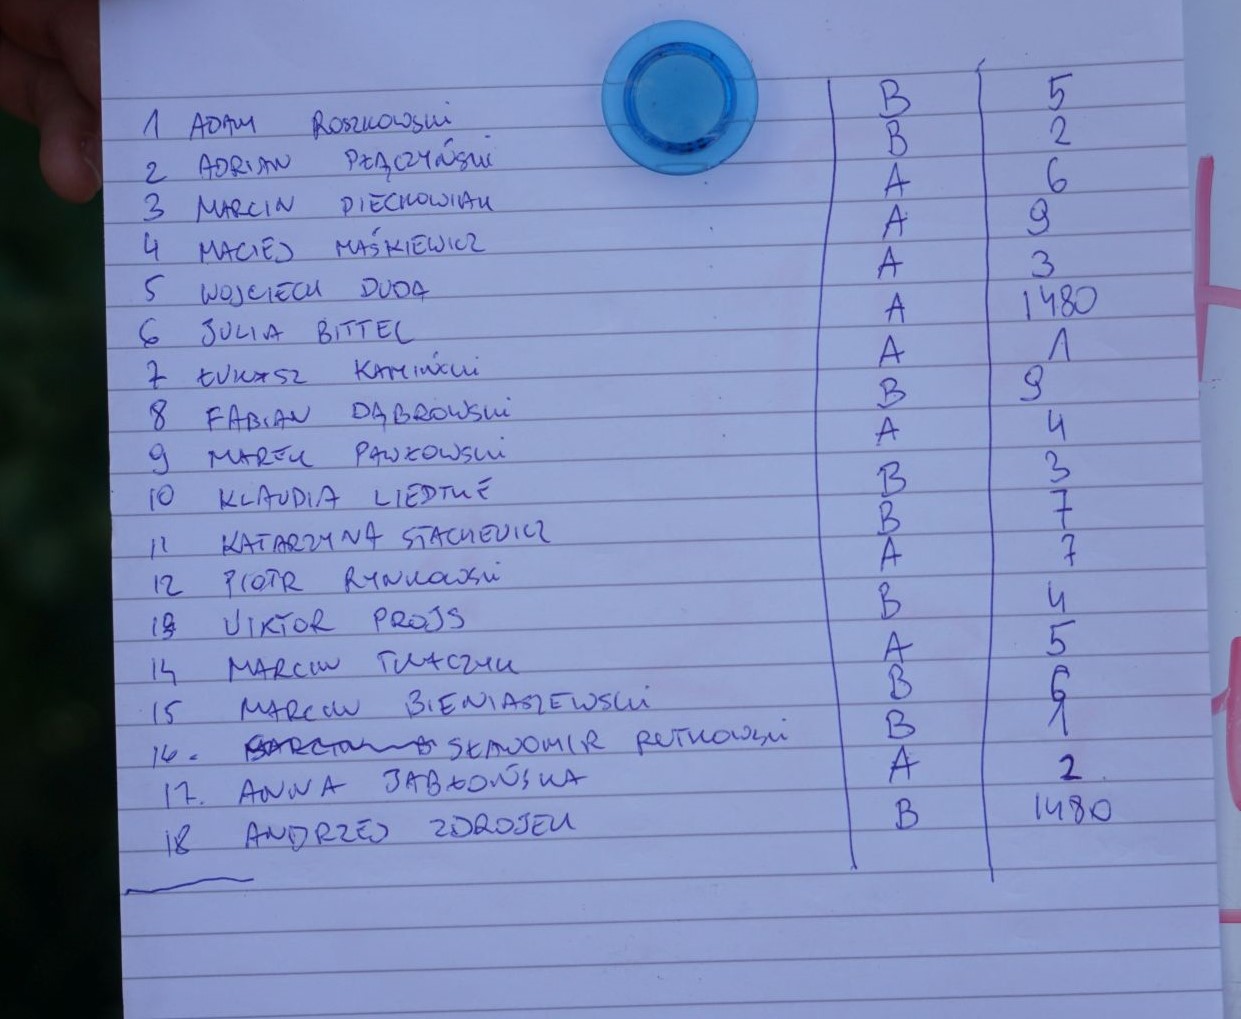 1 ADAM ROSZKOWSKI B 5
2 ADRIAN PŁĄCZYŃSKI B 2
3 MARCIN PIECHOWIAK A 6
4 MACIEJ MAŚKIEWICZ A 9
5 WOJCIECH DUDA A 3
6 JULIA BITTEL A 1480
7 ŁUKASZ KAMIŃSKI A 1
8 FABIAN DĄBROWSKI B 9
9 MAREK PAWŁOWSKI A 4
10 KLAUDIA LIEDTKE B 3
11 KATARZYNA STACHEVICZ B 7
12 PIOTR RYNKOWSKI A 7
13 WIKTOR PROJS B 4
14 MARCIN TKACZYK A 5
15 MARCIN BIENIASZEWSKI B 6
16. SŁAWOMIR RUTKOWSKI B 1
17. ANNA JABŁOŃSKA A 2
18 ANDRZEJ ZDROJEK B 1480